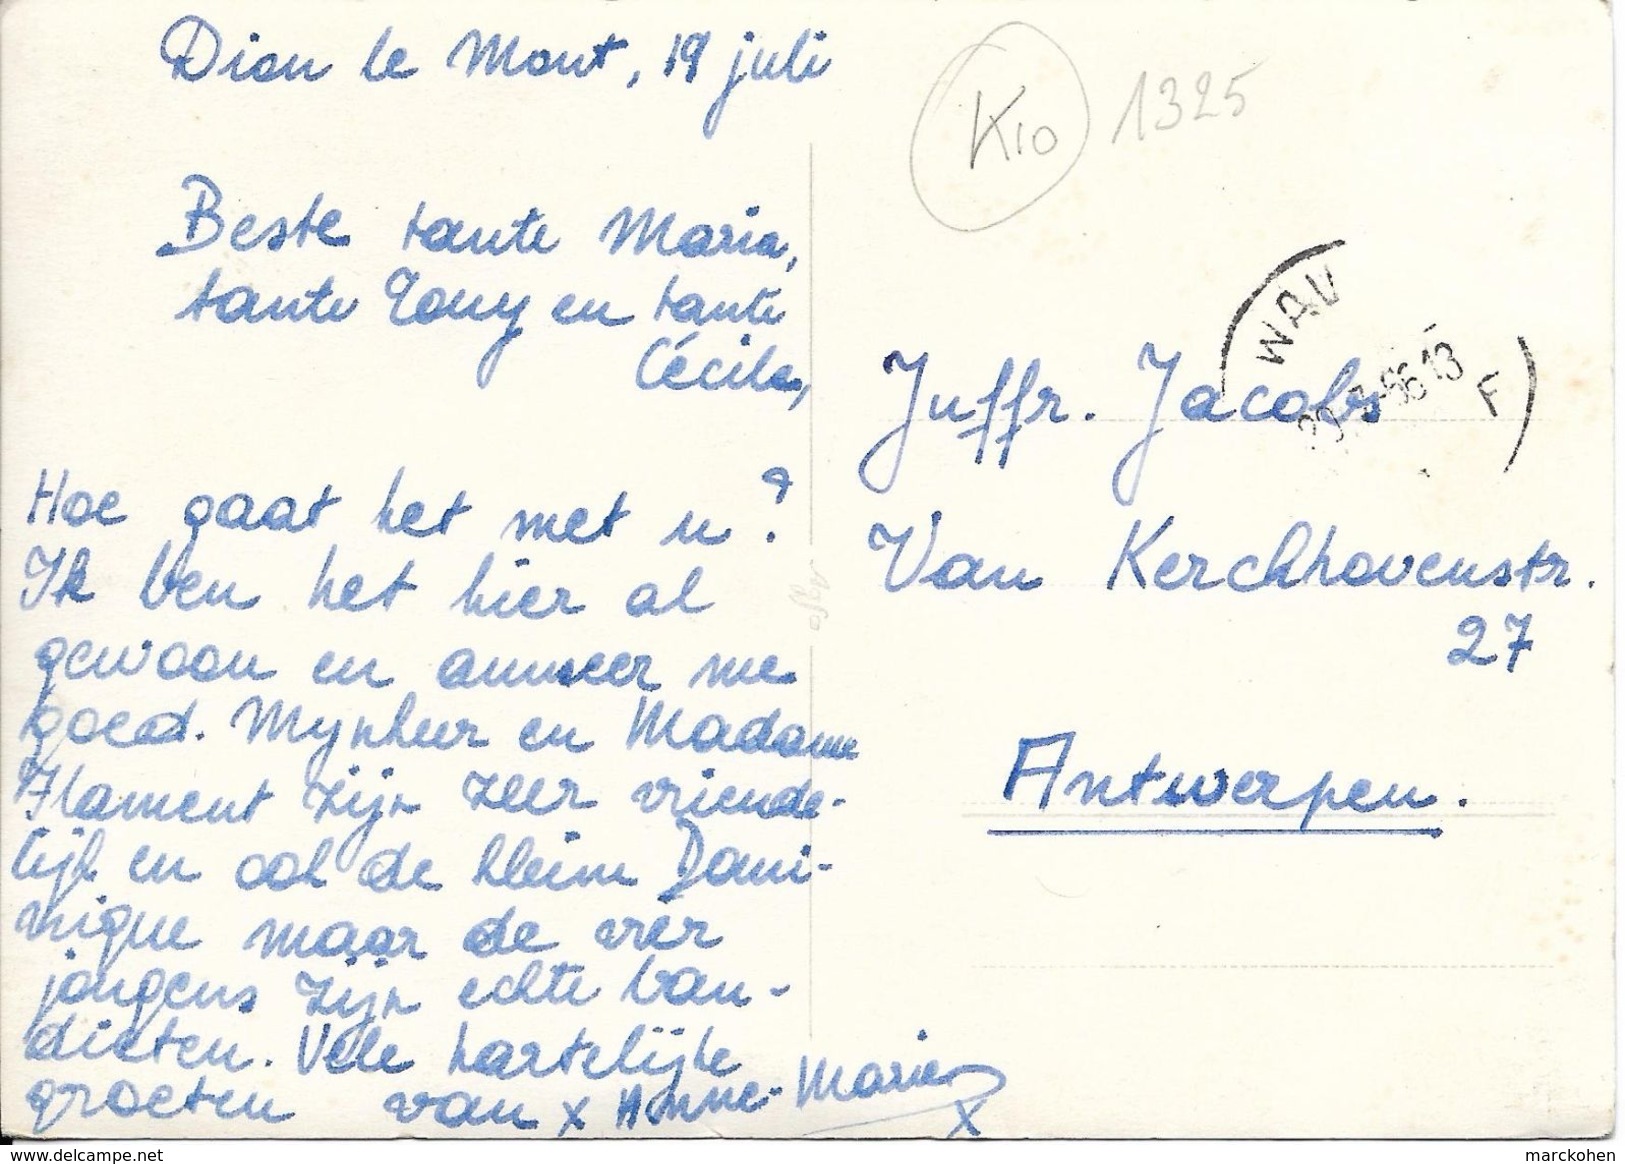 Dion le Mont, 18 juli
Beste tante Maria,
tante Tony en tante
Cécile,
Hoe gaat het met u?
Ik ben het hier al
gewoon en amuseer me
goed. Mynheer en Madame
Flament zijn zeer vriende-
lijk en ook de kleine Domi-
nique maar de vier
jongens zijn echte ban-
dieten. Vele hartelijke
groeten van x Anne-Marie
x
K10 1325
WAV
13
F
Juffr. Jacobs
Van Kerckhovenstr.
27
Antwerpen.
marckohen